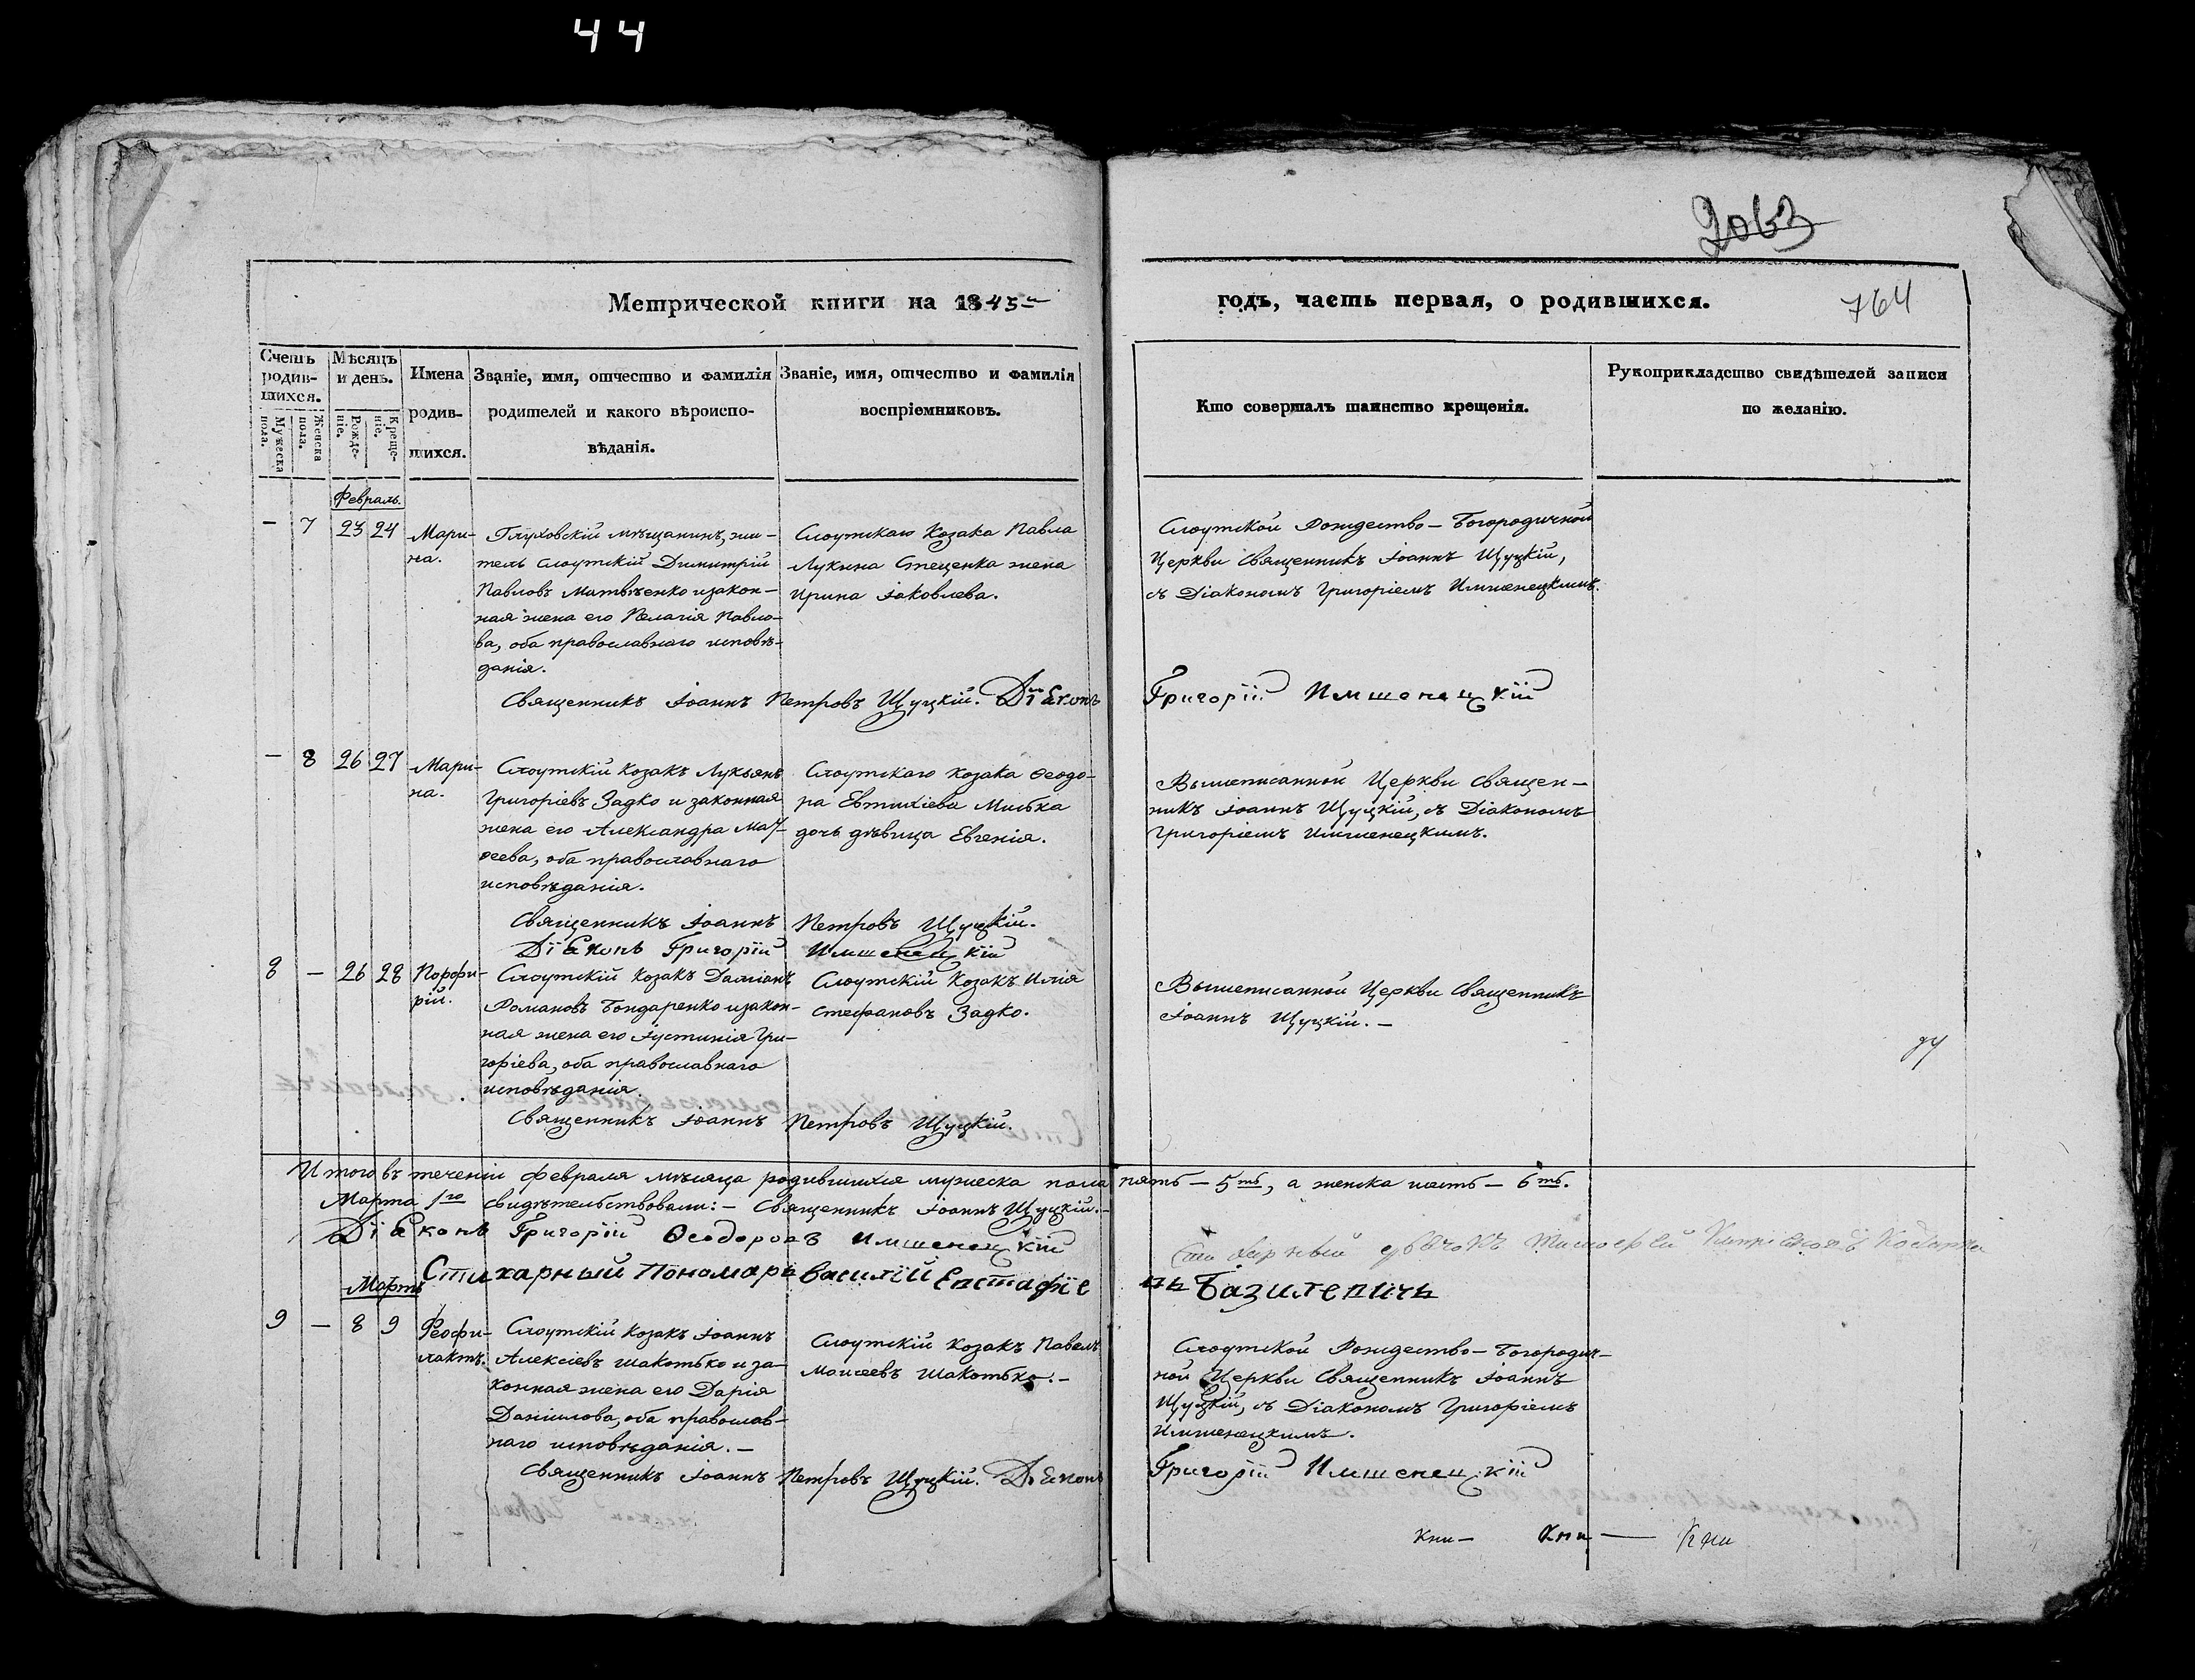 44
2063
Метрической книги на 1845
годъ, часть первая, о родившихся.
764
Счетъ родив-шихся.
Мужеска пола.
Женска пола.
Мѣсяцъ и день.
Рожде-ніе.
Креще-ніе.
Имена родив-шихся.
Званіе, имя, отчество и фамилія
родителей и какого вѣроиспо-
вѣданія.
Званіе, имя, отчество и фамилія
воспріемниковъ.
Кто совершалъ таинство крещенія.
Рукоприкладство свидѣтелей записи
по желанію.
Февраль.
– 7 23 24
Мари-
на.
Глуховскій мѣщанинъ, жи-
тель слоутскій Димитрій
Павловъ Матвѣенко и закон-
ная жена его Пелагія Павло-
ва, оба православнаго исповѣ-
данія.
Слоутскаго козака Павла
Лукина Стеценка жена
Ирина Іаковлева.
Слоутской Рождество-Богородичной
Церкви Священникъ Іоаннъ Щуцкій,
съ Діакономъ Григоріемъ Имшенецкимъ.
Священникъ Іоаннъ Петровъ Щуцкій. Діаконъ Григорій Имшенецкій
– 8 26 27
Мари-
на.
Слоутскій козакъ Лукьянъ
Григоріевъ Задко и законная
жена его Александра Мат-
ѳеева, оба православнаго
исповѣданія.
Слоутскаго козака Ѳеодо-
ра Евтихіева Мишка
дочь дѣвица Евгенія.
Вышеписанной Церкви Священ-
никъ Іоаннъ Щуцкій, съ Діакономъ
Григоріемъ Имшенецкимъ.
Священникъ Іоаннъ Петровъ Щуцкій.
Діаконъ Григорій Имшенецкій
8 – 26 28
Порфи-
рій.
Слоутскій козакъ Даміанъ
Романовъ Бондаренко и закон-
ная жена его Іустинія Гри-
горіева, оба православнаго
исповѣданія.
Слоутскій козакъ Илія
Стефановъ Задко.
Вышеписанной Церкви Священникъ
Іоаннъ Щуцкій. –
Священникъ Іоаннъ Петровъ Щуцкій.
Итого въ теченіи февраля мѣсяца родившихся мужеска пола пять – 5ть, а женска шесть – 6ть.
Марта 1го свидѣтельствовали: – Священникъ Іоаннъ Щуцкій. –
Діаконъ Григорій Ѳеодоровъ Имшенецкій
Стихарный Пономарь Василій Евстафіевъ Базилевичъ
Мартъ
9 – 8 9
Ѳеофи-
лактъ.
Слоутскій козакъ Іоаннъ
Алексіевъ Шакотько и за-
конная жена его Дарія
Даніилова, оба православ-
наго исповѣданія. –
Слоутскій козакъ Павелъ
Моисеевъ Шакотько. –
Слоутской Рождество-Богородич-
ной Церкви Священникъ Іоаннъ
Щуцкій, съ Діакономъ Григоріемъ
Имшенецкимъ.
Священникъ Іоаннъ Петровъ Щуцкій. Діаконъ Григорій Имшенецкій
Кни – Кни – Кни